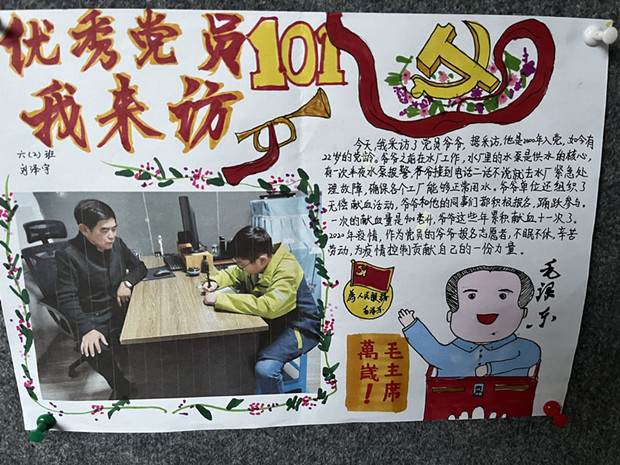 优秀党员
101
我来访
六(2)班
今天,我采访了党员爷爷,据采访,他是2000年入党,如今有
22岁的党龄,爷爷之前在水厂工作,水厂里的水泵是供水的核心,
有一次半夜水泵报警,爷爷接到电话二话不说就去水厂紧急处
理故障,确保各个工厂能够正常用水。爷爷单位还组织了
无偿献血活动,爷爷和他的同事们都积极报名,踊跃参与。
一次的献血量是如老什,爷爷这些年累积献血十一次了。
2020年疫情,作为党员的爷爷报名志愿者,不眠不休,辛苦
劳动,为疫情控制贡献自己的一份力量。
为人民服务
毛泽东
毛泽东
毛主席
萬歲!